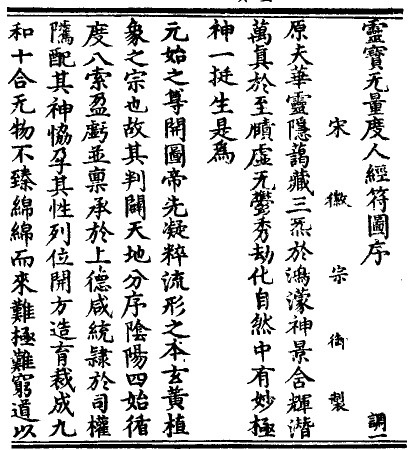 靈寶无量度人經符圖序　調一
宋徽宗御製
原夫華靈隱藹藏三炁於鴻濛神景含輝潛
萬真於至賾虛无鬱秀劫化自然中有妙極
神一挺生是為
元始之尊開圖帝先凝粹流形之本玄黃植
象之宗也故其判闢天地分序陰陽四始循
度八索盈虧並禀承於上德咸統隸於司權
隲配其神恊孕其性列位開方造育裁成九
和十合无物不臻綿綿而來難極難窮道以